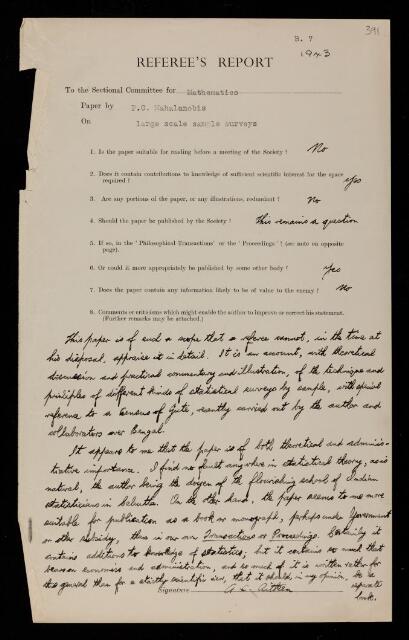 391
B. 7
1943
REFEREE'S REPORT
To the Sectional Committee for Mathematics
Paper by P.C. Mahalanobis
On large scale sample surveys
1. Is the paper suitable for reading before a meeting of the Society? No
2. Does it contain contributions to knowledge of sufficient scientific interest for the space
required? Yes
3. Are any portions of the paper, or any illustrations, redundant? No
4. Should the paper be published by the Society? This remains a question
5. If so, in the 'Philosophical Transactions' or the 'Proceedings'? (see note on opposite
page).
6. Or could it more appropriately be published by some other body? Yes
7. Does the paper contain any information likely to be of value to the enemy? No
8. Comments or criticisms which might enable the author to improve or correct his statement.
(Further remarks may be attached.)
This paper is of such a scope that a referee cannot, in the time at
his disposal, appraise it in detail. It is an account, with theoretical
discussion and practical commentary and illustration, of the technique and
principles of different kinds of statistical surveys by sample, with special
reference to a Census of Jute, recently carried out by the author and
collaborators over Bengal.
It appears to me that the paper is of both theoretical and adminis-
trative importance. I find no fault anywhere in statistical theory, as is
natural, the author being the doyen of the flourishing school of Indian
statisticians in Calcutta. On the other hand, the paper seems to me more
suitable for publication as a book or monograph, perhaps under Government
or other subsidy, than in our own Transactions or Proceedings. Certainly it
contains additions to knowledge of statistics; but it contains so much that
bears on economics and administration, and so much of it is written rather for
the general than for a strictly scientific view, that it should, in my opinion, be a
separate
book.
Signature A. C. Aitken